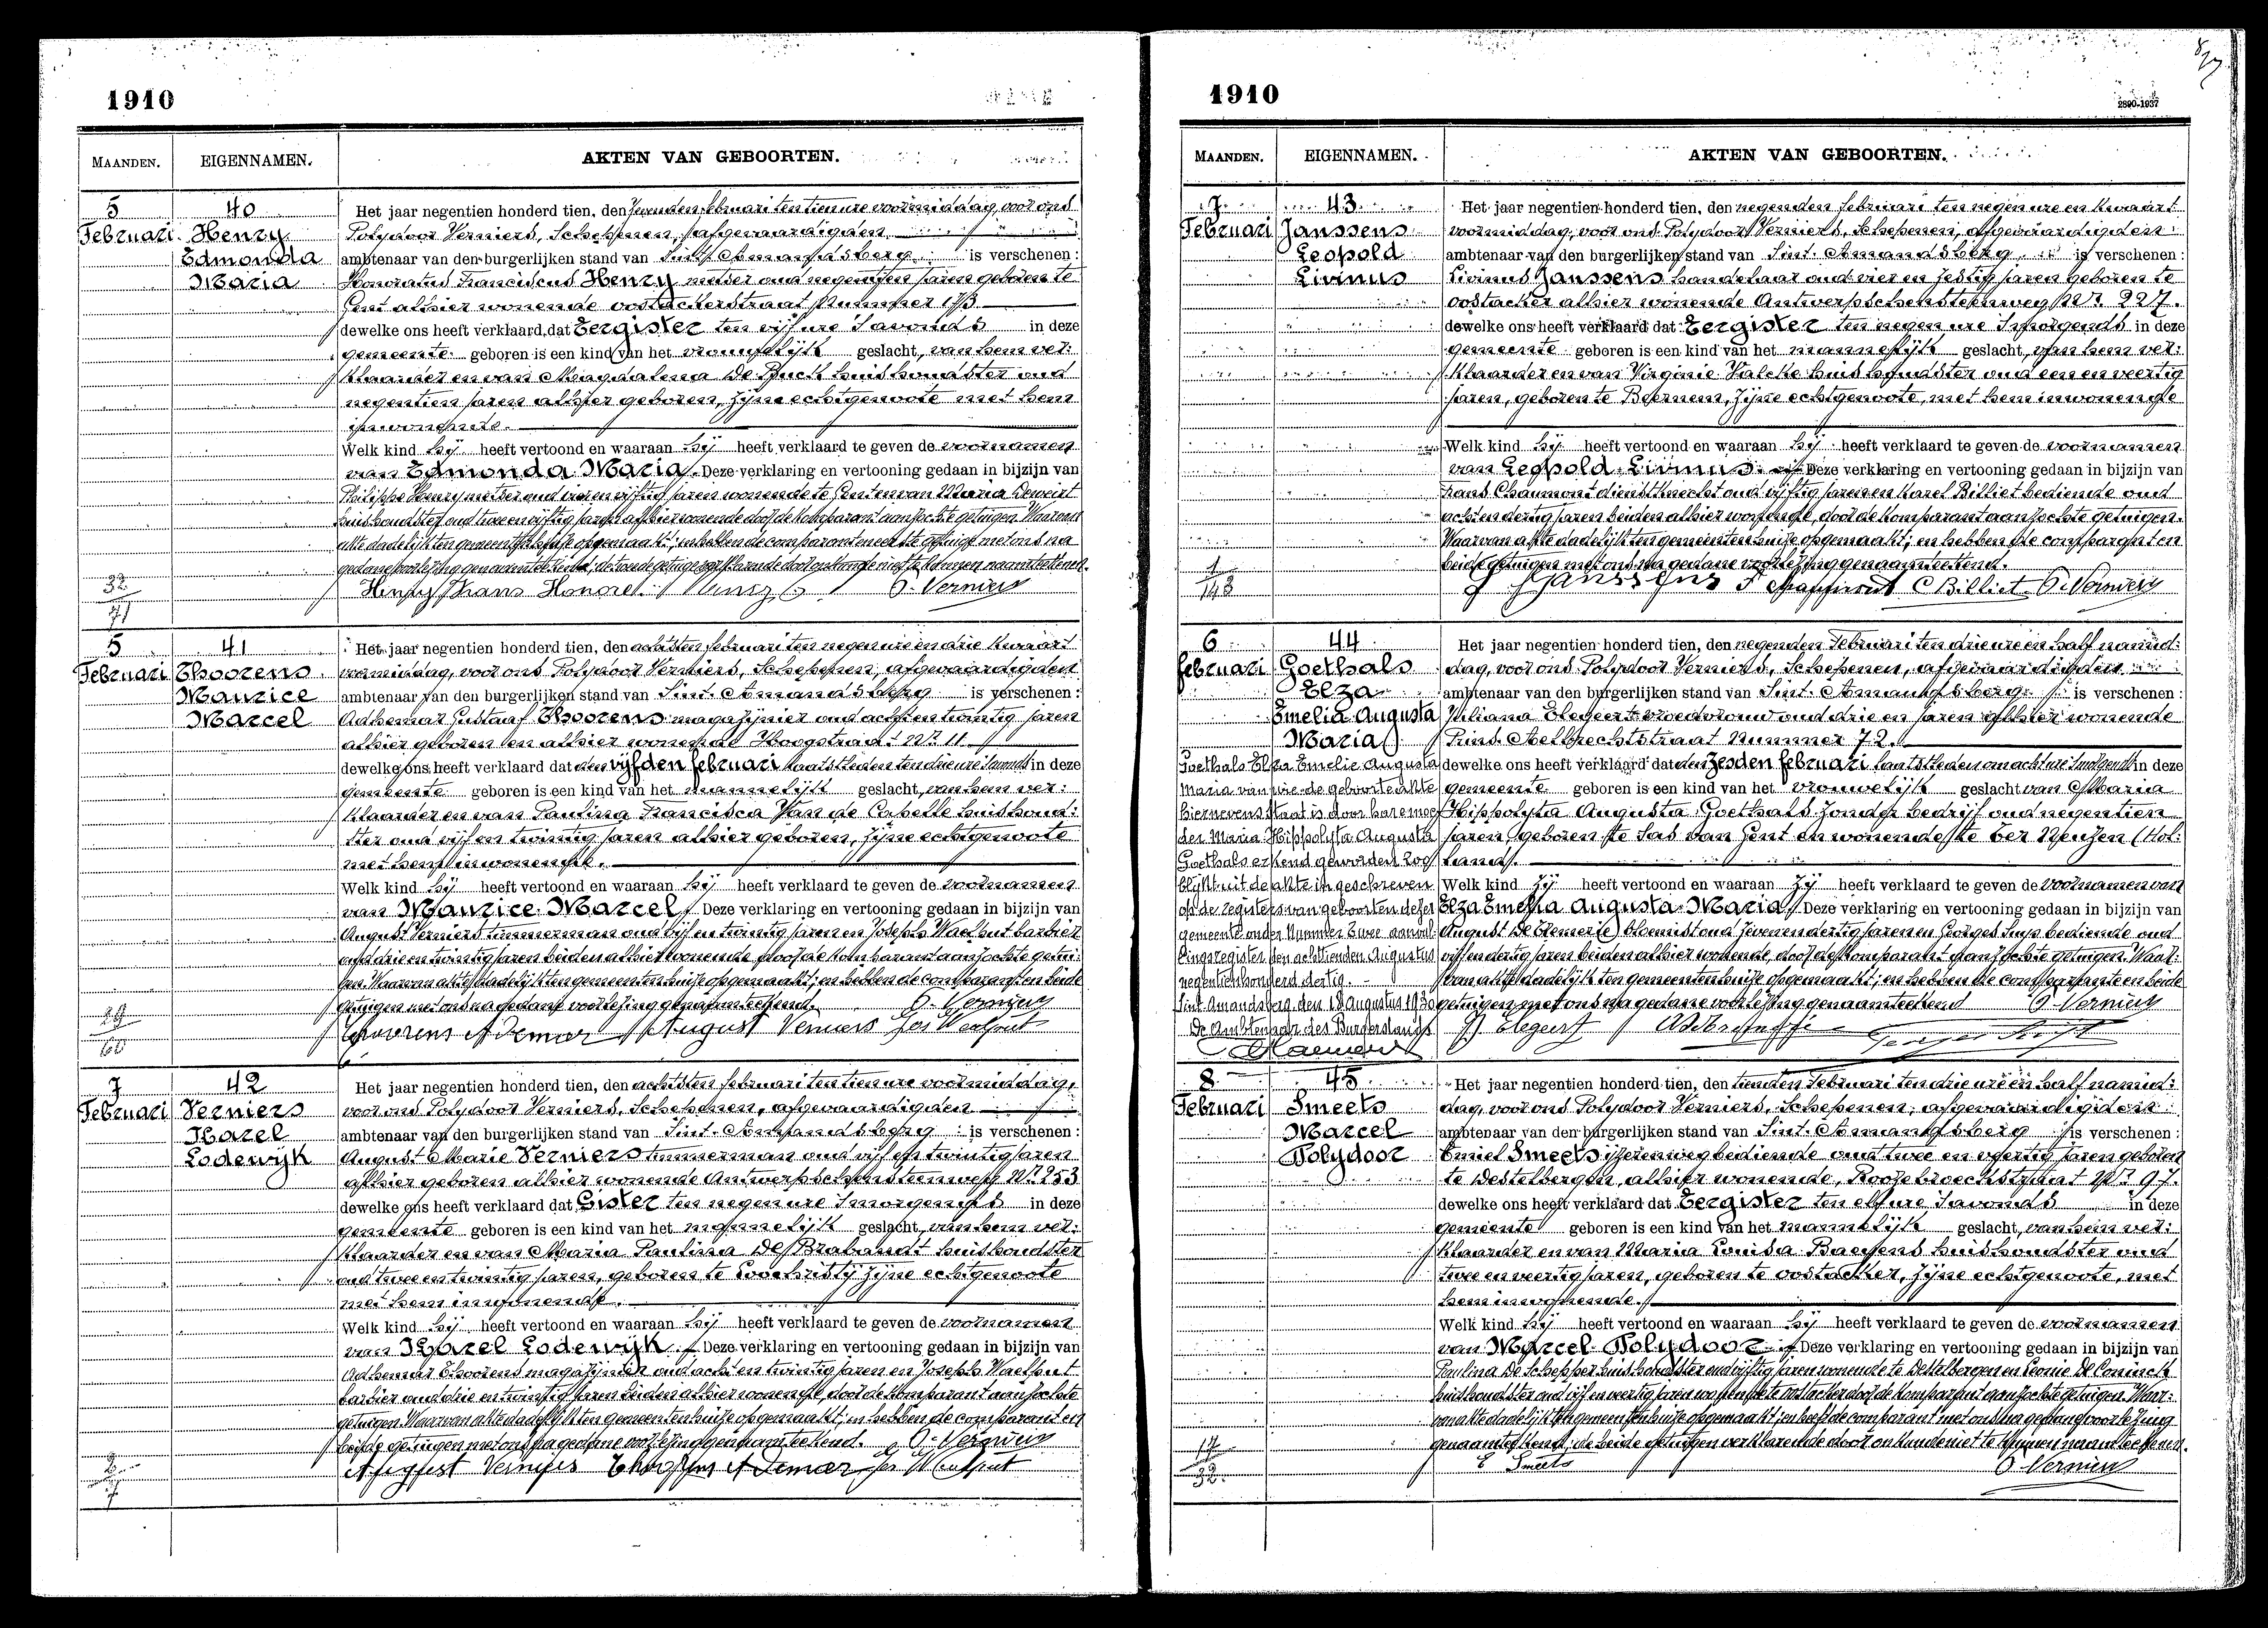 1910
MAANDEN. EIGENNAMEN. AKTEN VAN GEBOORTEN.
5 40 Het jaar negentien honderd tien, den zevenden februari ten tien ure voormiddag, voor ons
Februari Henry Polydoor Verniers, Schepenen, afgevaardigden
Edmonda ambtenaar van den burgerlijken stand van Sint Amandsberg is verschenen:
Maria Honoratus Franciscus Henry metser oud negentien jaren geboren te
Gent alhier wonende oostackerstraat Nummer 173
dewelke ons heeft verklaard, dat Eergister ten vijf ure s'avonds in deze
gemeente geboren is een kind van het vrouwelijk geslacht, van hem ver:
klaarder en van Magdalena De Buck huishoudster oud
negentien jaren alhier geboren, zijne echtgenoote met hem
inwonende.
Welk kind hij heeft vertoond en waaraan hij heeft verklaard te geven de voornamen
van Edmonda Maria. Deze verklaring en vertooning gedaan in bijzijn van
Philippe Henry metser oud vier en vijftig jaren wonende te Gent en van Maria Deweirt
huishoudster oud twee en vijftig jaren alhier wonende door de Komparant aanzochte getuigen. Waarvan
akte dadelijk ten gemeentenhuize opgemaakt; en hebben de comparant en eerste getuige met ons na
gedane voorlezing genaamteekend, de tweede getuige verklarende door onkunde niet te kunnen naamteekenen.
32 Henry Frans Honoré Henry P. Verniers
71
5 41 Het jaar negentien honderd tien, den achtsten februari ten negen ure en drie kwaart
Februari Thoorens voormiddag, voor ons Polydoor Verniers, Schepenen, afgevaardigden
Maurice ambtenaar van den burgerlijken stand van Sint Amandsberg is verschenen:
Marcel Adhemar Gustaaf Thoorens magazijnier oud acht en twintig jaren
alhier geboren en alhier wonende Hoogstraat Nr. 11
dewelke ons heeft verklaard dat den vijfden februari laatstleden ten drie ure s'avonds in deze
gemeente geboren is een kind van het mannelijk geslacht, van hem ver:
klaarder en van Paulina Francisca Van de Capelle huishoud:
ster oud vijf en twintig jaren alhier geboren, zijne echtgenoote
met hem inwonende.
Welk kind hij heeft vertoond en waaraan hij heeft verklaard te geven de voornamen
van Maurice Marcel. Deze verklaring en vertooning gedaan in bijzijn van
August Verniers timmerman oud vijf en twintig jaren en Joseph Waelput barbier
oud drie en twintig jaren beiden alhier wonende door de Komparant aanzochte getui:
gen. Waarvan akte dadelijk ten gemeentenhuize opgemaakt; en hebben de comparant en beide
getuigen met ons na gedane voorlezing genaamteekend. P. Verniers
29 Thoorens Ademar August Verniers Jos Waelput
60
7 42 Het jaar negentien honderd tien, den achtsten februari ten tien ure voormiddag,
Februari Verniers voor ons Polydoor Verniers, Schepenen, afgevaardigden
Karel ambtenaar van den burgerlijken stand van Sint-Amandsberg is verschenen:
Lodewijk August Marie Verniers timmerman oud vijf en twintig jaren
alhier geboren alhier wonende Antwerpschensteenweg Nr. 253
dewelke ons heeft verklaard dat Gister ten negen ure s'morgends in deze
gemeente geboren is een kind van het mannelijk geslacht, van hem ver:
klaarder en van Maria Paulina De Brabandt huishoudster
oud twee en twintig jaren, geboren te Loochristij zijne echtgenoote
met hem inwonende.
Welk kind hij heeft vertoond en waaraan hij heeft verklaard te geven de voornamen
van Karel Lodewijk Deze verklaring en vertooning gedaan in bijzijn van
Adhemar Thoorens magazijnier oud acht en twintig jaren en Joseph Waelput
barbier oud drie en twintig jaren beiden alhier wonende, door de Komparant aanzochte
getuigen. Waarvan akte dadelijk ten gemeentenhuize opgemaakt; en hebben de comparant en
beide getuigen met ons na gedane voorlezing genaamteekend. P. Verniers
2 August Verniers Thoorens Ademar Jos Waelput
7
1910
2890-1937
MAANDEN. EIGENNAMEN. AKTEN VAN GEBOORTEN.
7 43 Het jaar negentien honderd tien, den negenden februari ten negen ure en kwaart
Februari Janssens voormiddag, voor ons Polydoor Verniers, Schepenen, afgevaardigden
Leopold ambtenaar van den burgerlijken stand van Sint. Amandsberg is verschenen:
Livinus Livinus Janssens handelaar oud vier en zestig jaren geboren te
oostacker alhier wonende Antwerpschensteenweg Nr. 227.
dewelke ons heeft verklaard dat Eergister ten negen ure s'morgends in deze
gemeente geboren is een kind van het mannelijk geslacht, van hem ver:
klaarder en van Virginie Valcke huishoudster oud een en veertig
jaren, geboren te Beernem, zijne echtgenoote, met hem inwonende
Welk kind hij heeft vertoond en waaraan hij heeft verklaard te geven de voornamen
van Leopold Livinus. Deze verklaring en vertooning gedaan in bijzijn van
Frans Chaumont dienstknecht oud vijftig jaren en Karel Billiet bediende oud
acht en dertig jaren beiden alhier wonende, door de Komparant aanzochte getuigen.
Waarvan akte dadelijk ten gemeentenhuize opgemaakt; en hebben de comparant en
beide getuigen met ons na gedane voorlezing genaamteekend.
1 Janssens F Chaumont C Billiet P. Verniers
148
6 44 Het jaar negentien honderd tien, den negenden Februari ten drie ure en half namid:
februari Goethals dag, voor ons Polydoor Verniers, Schepenen, afgevaardigden
Elza ambtenaar van den burgerlijken stand van Sint. Amandsberg is verschenen:
Emelia Augusta Juliana Elegeert vroedvrouw oud drie en jaren alhier wonende
Maria Prins Aelbrechtstraat Nummer 72.
Goethals Elza Emelie Augusta dewelke ons heeft verklaard dat den zesden februari laatstleden om acht ure s'morgends in deze
Maria van wie de geboorteakte gemeente geboren is een kind van het vrouwelijk geslacht van Maria
hiernevens staat is door hare moe Hippolyta Augusta Goethals zonder bedrijf oud negentien
der Maria Hippolyta Augusta jaren, geboren te Sas van Gent en wonende te ter Neuzen (Hol:
Goethals erkend geworden zoo land).
blijkt uit de akte ingeschreven Welk kind Zij heeft vertoond en waaraan Zij heeft verklaard te geven de voornamen van
op de registers van geboorten dezer Elza Emelia Augusta Maria. Deze verklaring en vertooning gedaan in bijzijn van
gemeente onder Nummer twee aanvul August De Cremer(e) bloemist oud zeven en dertig jaren en Georges Suys bediende oud
lingsregister, den achttienden Augustus vijf en dertig jaren beiden alhier wonende, door de komparant aanzochte getuigen. Waar:
negentienhonderd dertig. van akte dadelijk ten gemeentenhuize opgemaakt; en hebben de comparante en beide
Sint Amandsberg, den 18 augustus 1930 getuigen met ons na gedane voorlezing genaamteekend P. Verniers
De Ambtenaar des Burgerstands J. Elegeert
8 45 Het jaar negentien honderd tien, den tienden Februari ten drie ure en half namid:
Februari Smeets dag, voor ons Polydoor Verniers, Schepenen, afgevaardigden
Marcel ambtenaar van den burgerlijken stand van Sint. Amandsberg is verschenen:
Polydoor Emiel Smeets ijzerenwegbediende oud twee en veertig jaren geboren
te Destelbergen, alhier wonende, Roozebroeckstraat Nr. 97.
dewelke ons heeft verklaard dat Eergister ten elf ure s'avonds in deze
gemeente geboren is een kind van het mannelijk geslacht, van hem ver:
klaarder en van Maria Louisa Baeyens huishoudster oud
twee en veertig jaren, geboren te oostacker, zijne echtgenoote, met
hem inwonende.
Welk kind hij heeft vertoond en waaraan hij heeft verklaard te geven de voornamen
van Marcel Polydoor. Deze verklaring en vertooning gedaan in bijzijn van
Paulina De Schepper huishoudster oud vijftig jaren wonende te Destelbergen en Leonie De Coninck
huishoudster oud vijf en veertig jaren wonende te oostacker door de komparant aanzochte getuigen. Waar:
van akte dadelijk ten gemeentenhuize opgemaakt; en heeft de comparant met ons na gedane voorlezing
genaamteekend; de beide getuigen verklarende door onkunde niet te kunnen naamteekenen.
17 E Smeets P. Verniers
32.